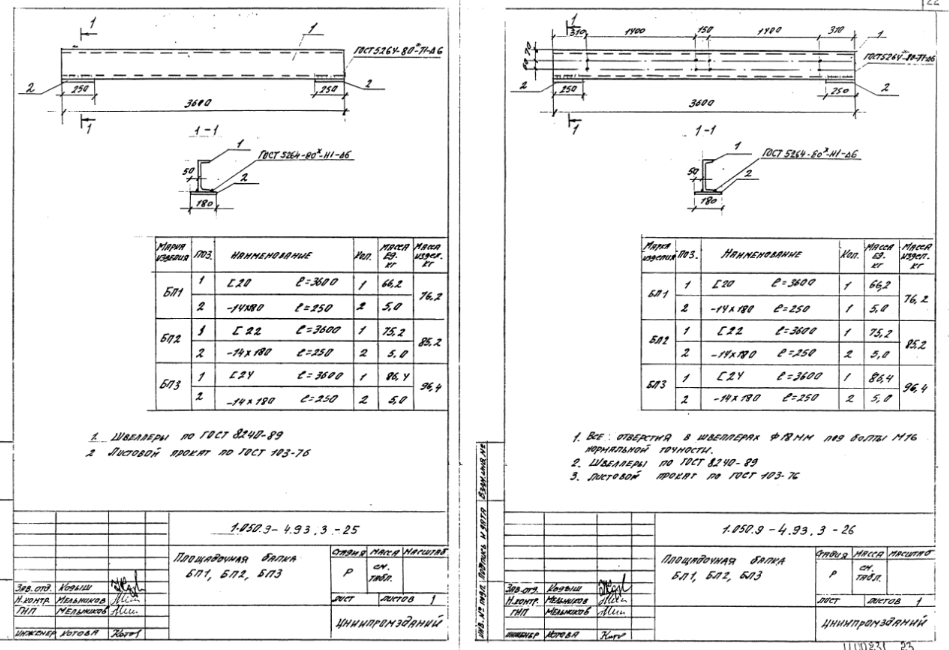 1
1
ГОСТ 5264-80*-Т1-Δ6
2
2
250
250
3600
1
1-1
1
ГОСТ 5264-80*-Н1-Δ6
50
2
180
МАРКА ИЗДЕЛИЯ ПОЗ. НАИМЕНОВАНИЕ КОЛ. МАССА ЕД. КГ МАССА ИЗДЕЛ. КГ
БП1 1 [20 ℓ=3600 1 66,2 76,2
2 -14х180 ℓ=250 2 5,0
БП2 1 [22 ℓ=3600 1 75,2 85,2
2 -14х180 ℓ=250 2 5,0
БП3 1 [24 ℓ=3600 1 86,4 96,4
2 -14х180 ℓ=250 2 5,0
1. ШВЕЛЛЕРЫ ПО ГОСТ 8240-89
2 ЛИСТОВОЙ ПРОКАТ ПО ГОСТ 103-76
1.050.9-4.93.3-25
ПЛОЩАДОЧНАЯ БАЛКА
БП1, БП2, БП3
СТАДИЯ МАССА МАСШТАБ
Р СМ. ТАБЛ.
ЛИСТ ЛИСТОВ 1
ЦНИИПРОМЗДАНИЙ
ЗАВ. ОТД. КОДЫШ
Н.КОНТР. МЕЛЬНИКОВ
ГИП МЕЛЬНИКОВ
ИНЖЕНЕР КОТОВА
22
1
310 1400 150 1400 310
1
70
ГОСТ 5264-80-Т1-Δ6
2
2
250
250
3600
1
1-1
1
ГОСТ 5264-80*-Н1-Δ6
50
2
180
МАРКА ИЗДЕЛИЯ ПОЗ. НАИМЕНОВАНИЕ КОЛ. МАССА ЕД. КГ МАССА ИЗДЕЛ. КГ
БП1 1 [20 ℓ=3600 1 66,2 76,2
2 -14х180 ℓ=250 1 5,0
БП2 1 [22 ℓ=3600 1 75,2 85,2
2 -14х180 ℓ=250 2 5,0
БП3 1 [24 ℓ=3600 1 86,4 96,4
2 -14х180 ℓ=250 2 5,0
1. ВСЕ ОТВЕРСТИЯ В ШВЕЛЛЕРАХ Ф18ММ ПОД БОЛТЫ М16
НОРМАЛЬНОЙ ТОЧНОСТИ.
2. ШВЕЛЛЕРЫ ПО ГОСТ 8240-89
3. ЛИСТОВОЙ ПРОКАТ ПО ГОСТ 103-76
1.050.9-4.93.3-26
ПЛОЩАДОЧНАЯ БАЛКА
БП1, БП2, БП3
СТАДИЯ МАССА МАСШТАБ
Р СМ. ТАБЛ.
ЛИСТ ЛИСТОВ 1
ЦНИИПРОМЗДАНИЙ
ЗАВ. ОТД. КОДЫШ
Н.КОНТР. МЕЛЬНИКОВ
ГИП МЕЛЬНИКОВ
ИНЖЕНЕР КОТОВА
ИНВ. № ПОДЛ. ПОДПИСЬ И ДАТА ВЗАМ. ИНВ. №
23